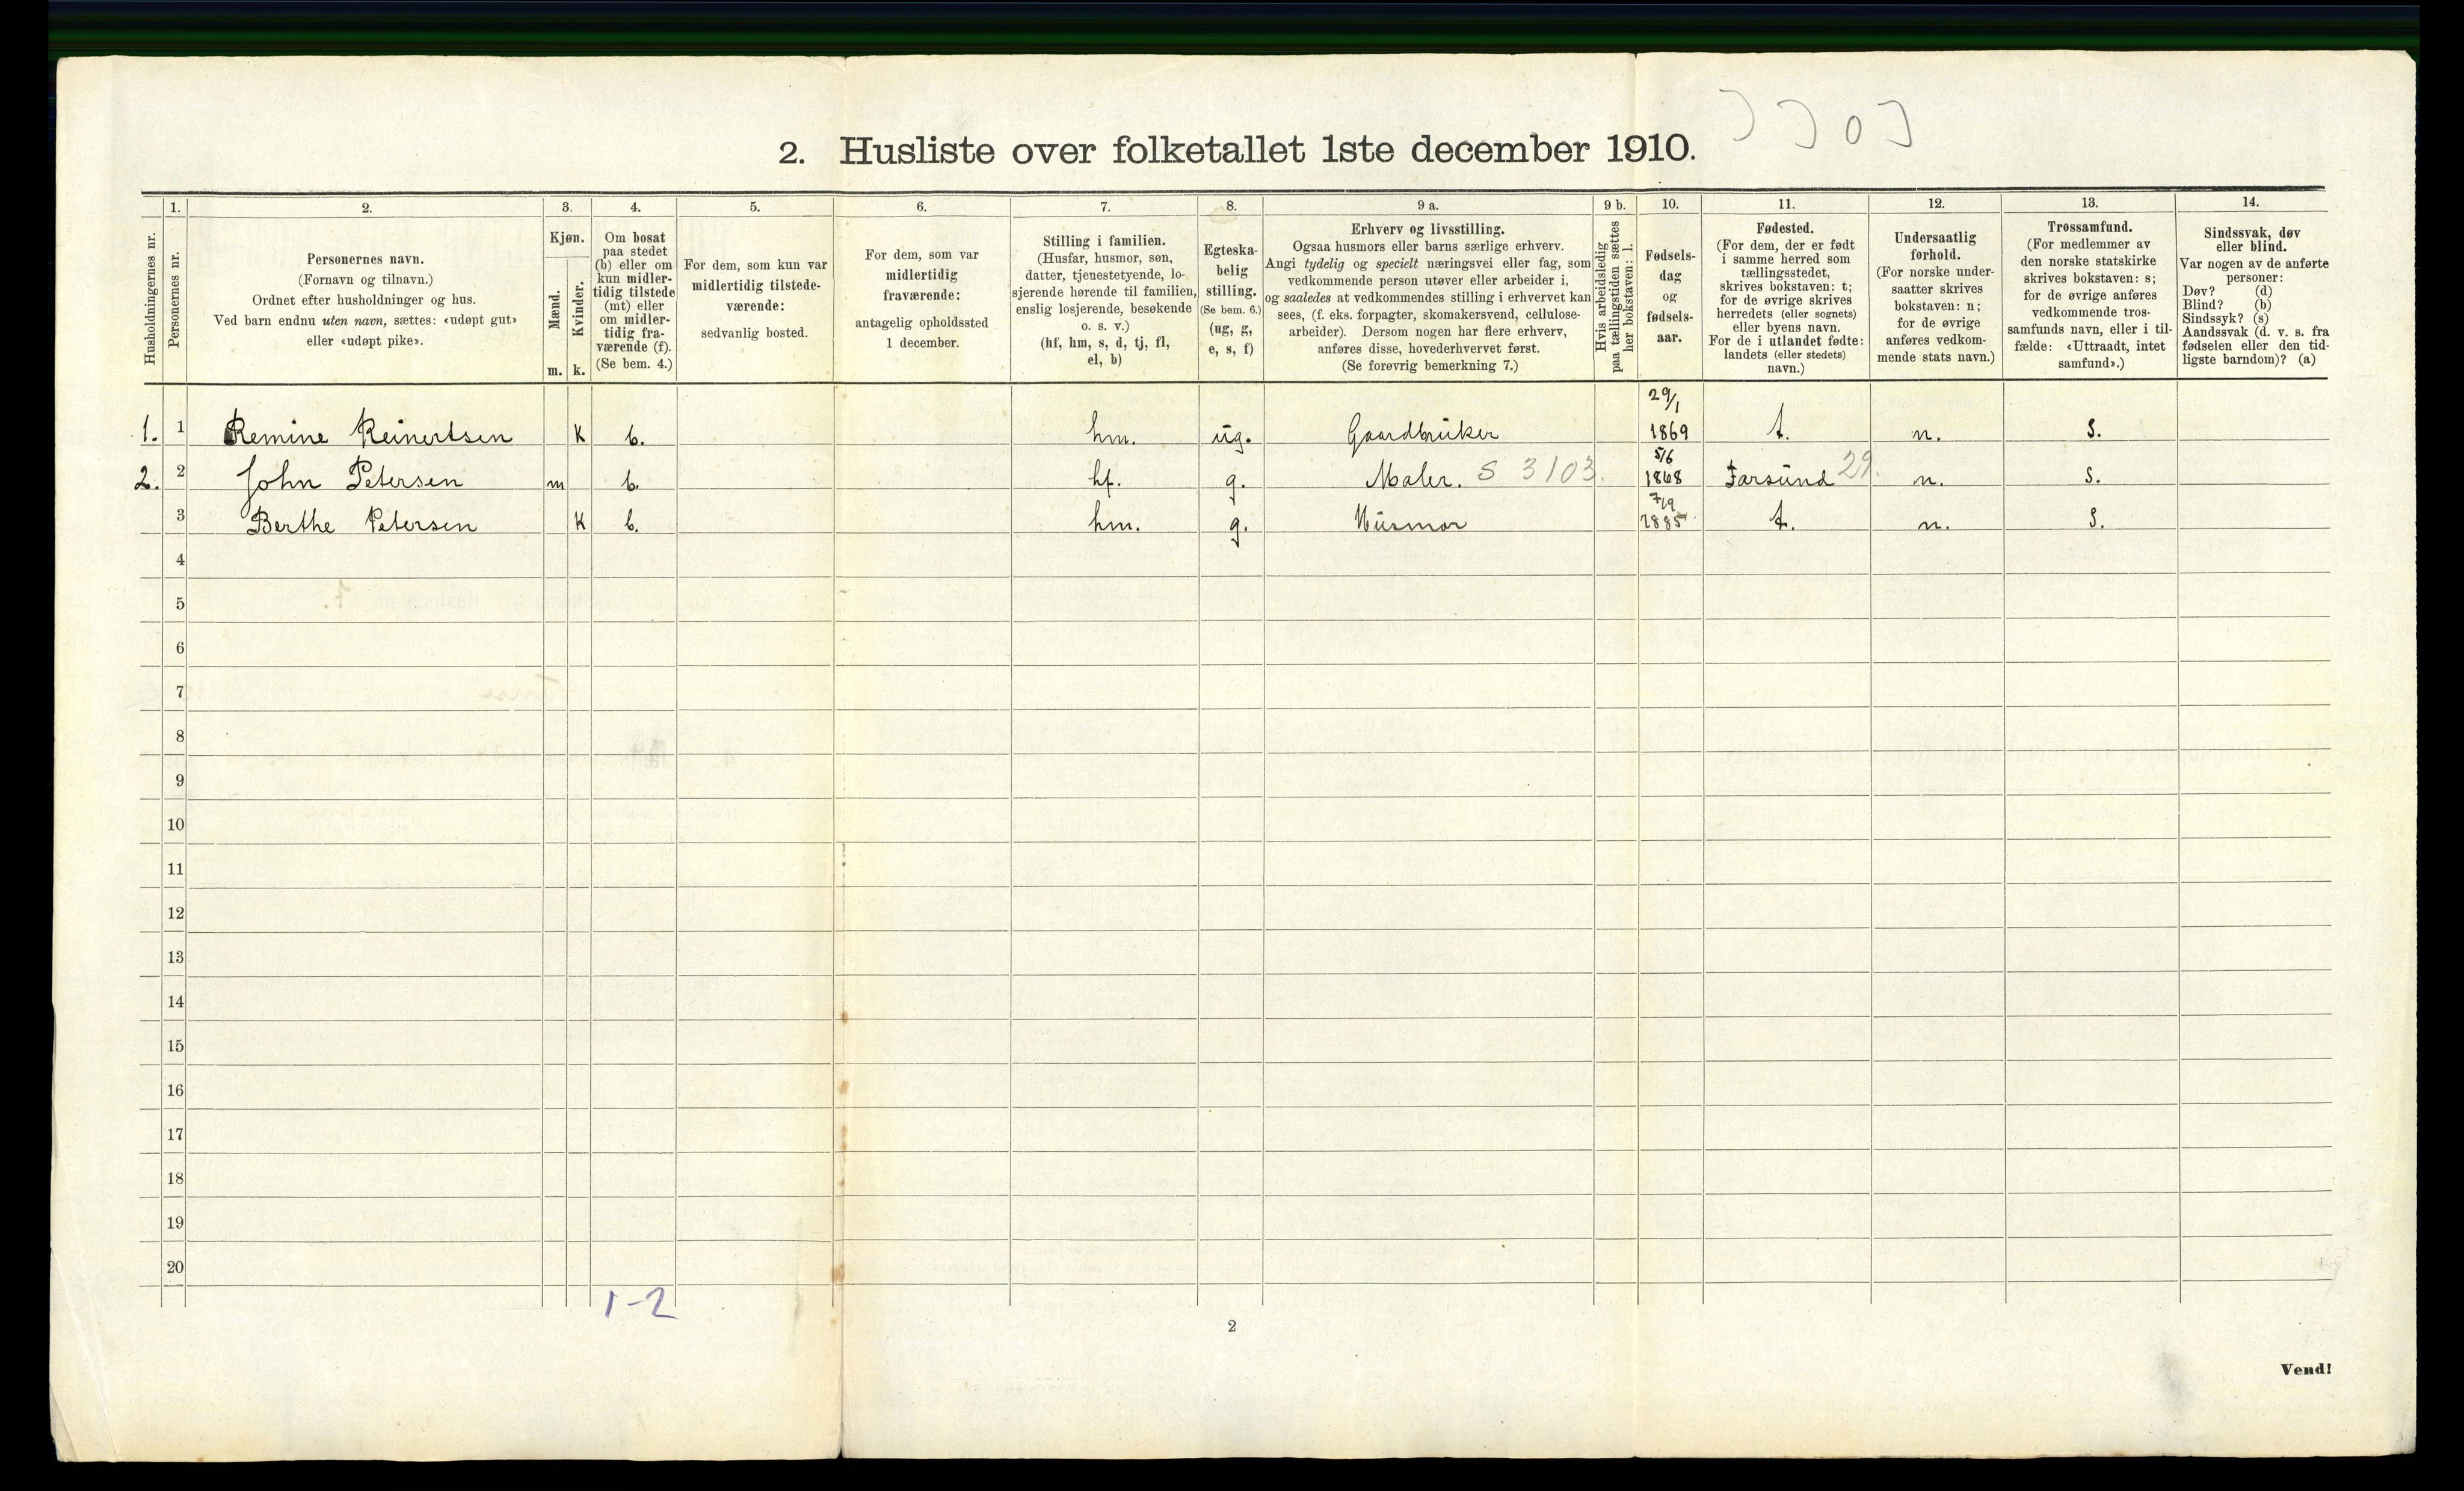 2. Husliste over folketallet 1ste december 1910.
Husholdningernes nr.
1.
Personernes nr.
2.
Personernes navn.
(Fornavn og tilnavn.)
Ordnet efter husholdninger og hus.
Ved barn endnu uten navn, sættes: «udøpt gut»
eller «udøpt pike».
3.
Kjøn.
Mænd.
Kvinder.
m. k.
4.
Om bosat
paa stedet
(b) eller om
kun midler-
tidig tilstede
(mt) eller
om midler-
tidig fra-
værende (f).
(Se bem. 4.)
5.
For dem, som kun var
midlertidig tilstede-
værende:
sedvanlig bosted.
6.
For dem, som var
midlertidig
fraværende:
antagelig opholdssted
1 december.
7.
Stilling i familien.
(Husfar, husmor, søn,
datter, tjenestetyende, lo-
sjerende hørende til familien,
enslig losjerende, besøkende
o. s. v.)
(hf, hm, s, d, tj, fl,
el, b)
8.
Egteska-
belig
stilling.
(Se bem. 6.)
(ug, g,
e, s, f)
9 a.
Erhverv og livsstilling.
Ogsaa husmors eller barns særlige erhverv.
Angi tydelig og specielt næringsvei eller fag, som
vedkommende person utøver eller arbeider i,
og saaledes at vedkommendes stilling i erhvervet kan
sees, (f. eks. forpagter, skomakersvend, cellulose-
arbeider). Dersom nogen har flere erhverv,
anføres disse, hovederhvervet først.
(Se forøvrig bemerkning 7.)
9 b.
Hvis arbeidsledig
paa tællingstiden sættes
her bokstaven: l.
10.
Fødsels-
dag
og
fødsels-
aar.
11.
Fødested.
(For dem, der er født
i samme herred som
tællingsstedet,
skrives bokstaven: t;
for de øvrige skrives
herredets (eller sognets)
eller byens navn.
For de i utlandet fødte:
landets (eller stedets)
navn.)
12.
Undersaatlig
forhold.
(For norske under-
saatter skrives
bokstaven: n;
for de øvrige
anføres vedkom-
mende stats navn.)
13.
Trossamfund.
(For medlemmer av
den norske statskirke
skrives bokstaven: s;
for de øvrige anføres
vedkommende tros-
samfunds navn, eller i til-
fælde: «Uttraadt, intet
samfund».)
14.
Sindssvak, døv
eller blind.
Var nogen av de anførte
personer:
Døv? (d)
Blind? (b)
Sindssyk? (s)
Aandssvak (d. v. s. fra
fødselen eller den tid-
ligste barndom)? (a)
1. 1 Remine Reinertsen K b. hm. ug. Gaardbruker 29/1 1869 t. n. s.
2. 2 John Petersen m b. hf. g. Maler. S 3103. 5/6 1868 Farsund 29. n. s.
3 Berthe Petersen K b. hm. g. Husmor 7/9 1885 t. n. s.
4
5
6
7
8
9
10
11
12
13
14
15
16
17
18
19
20
1-2
2
Vend!